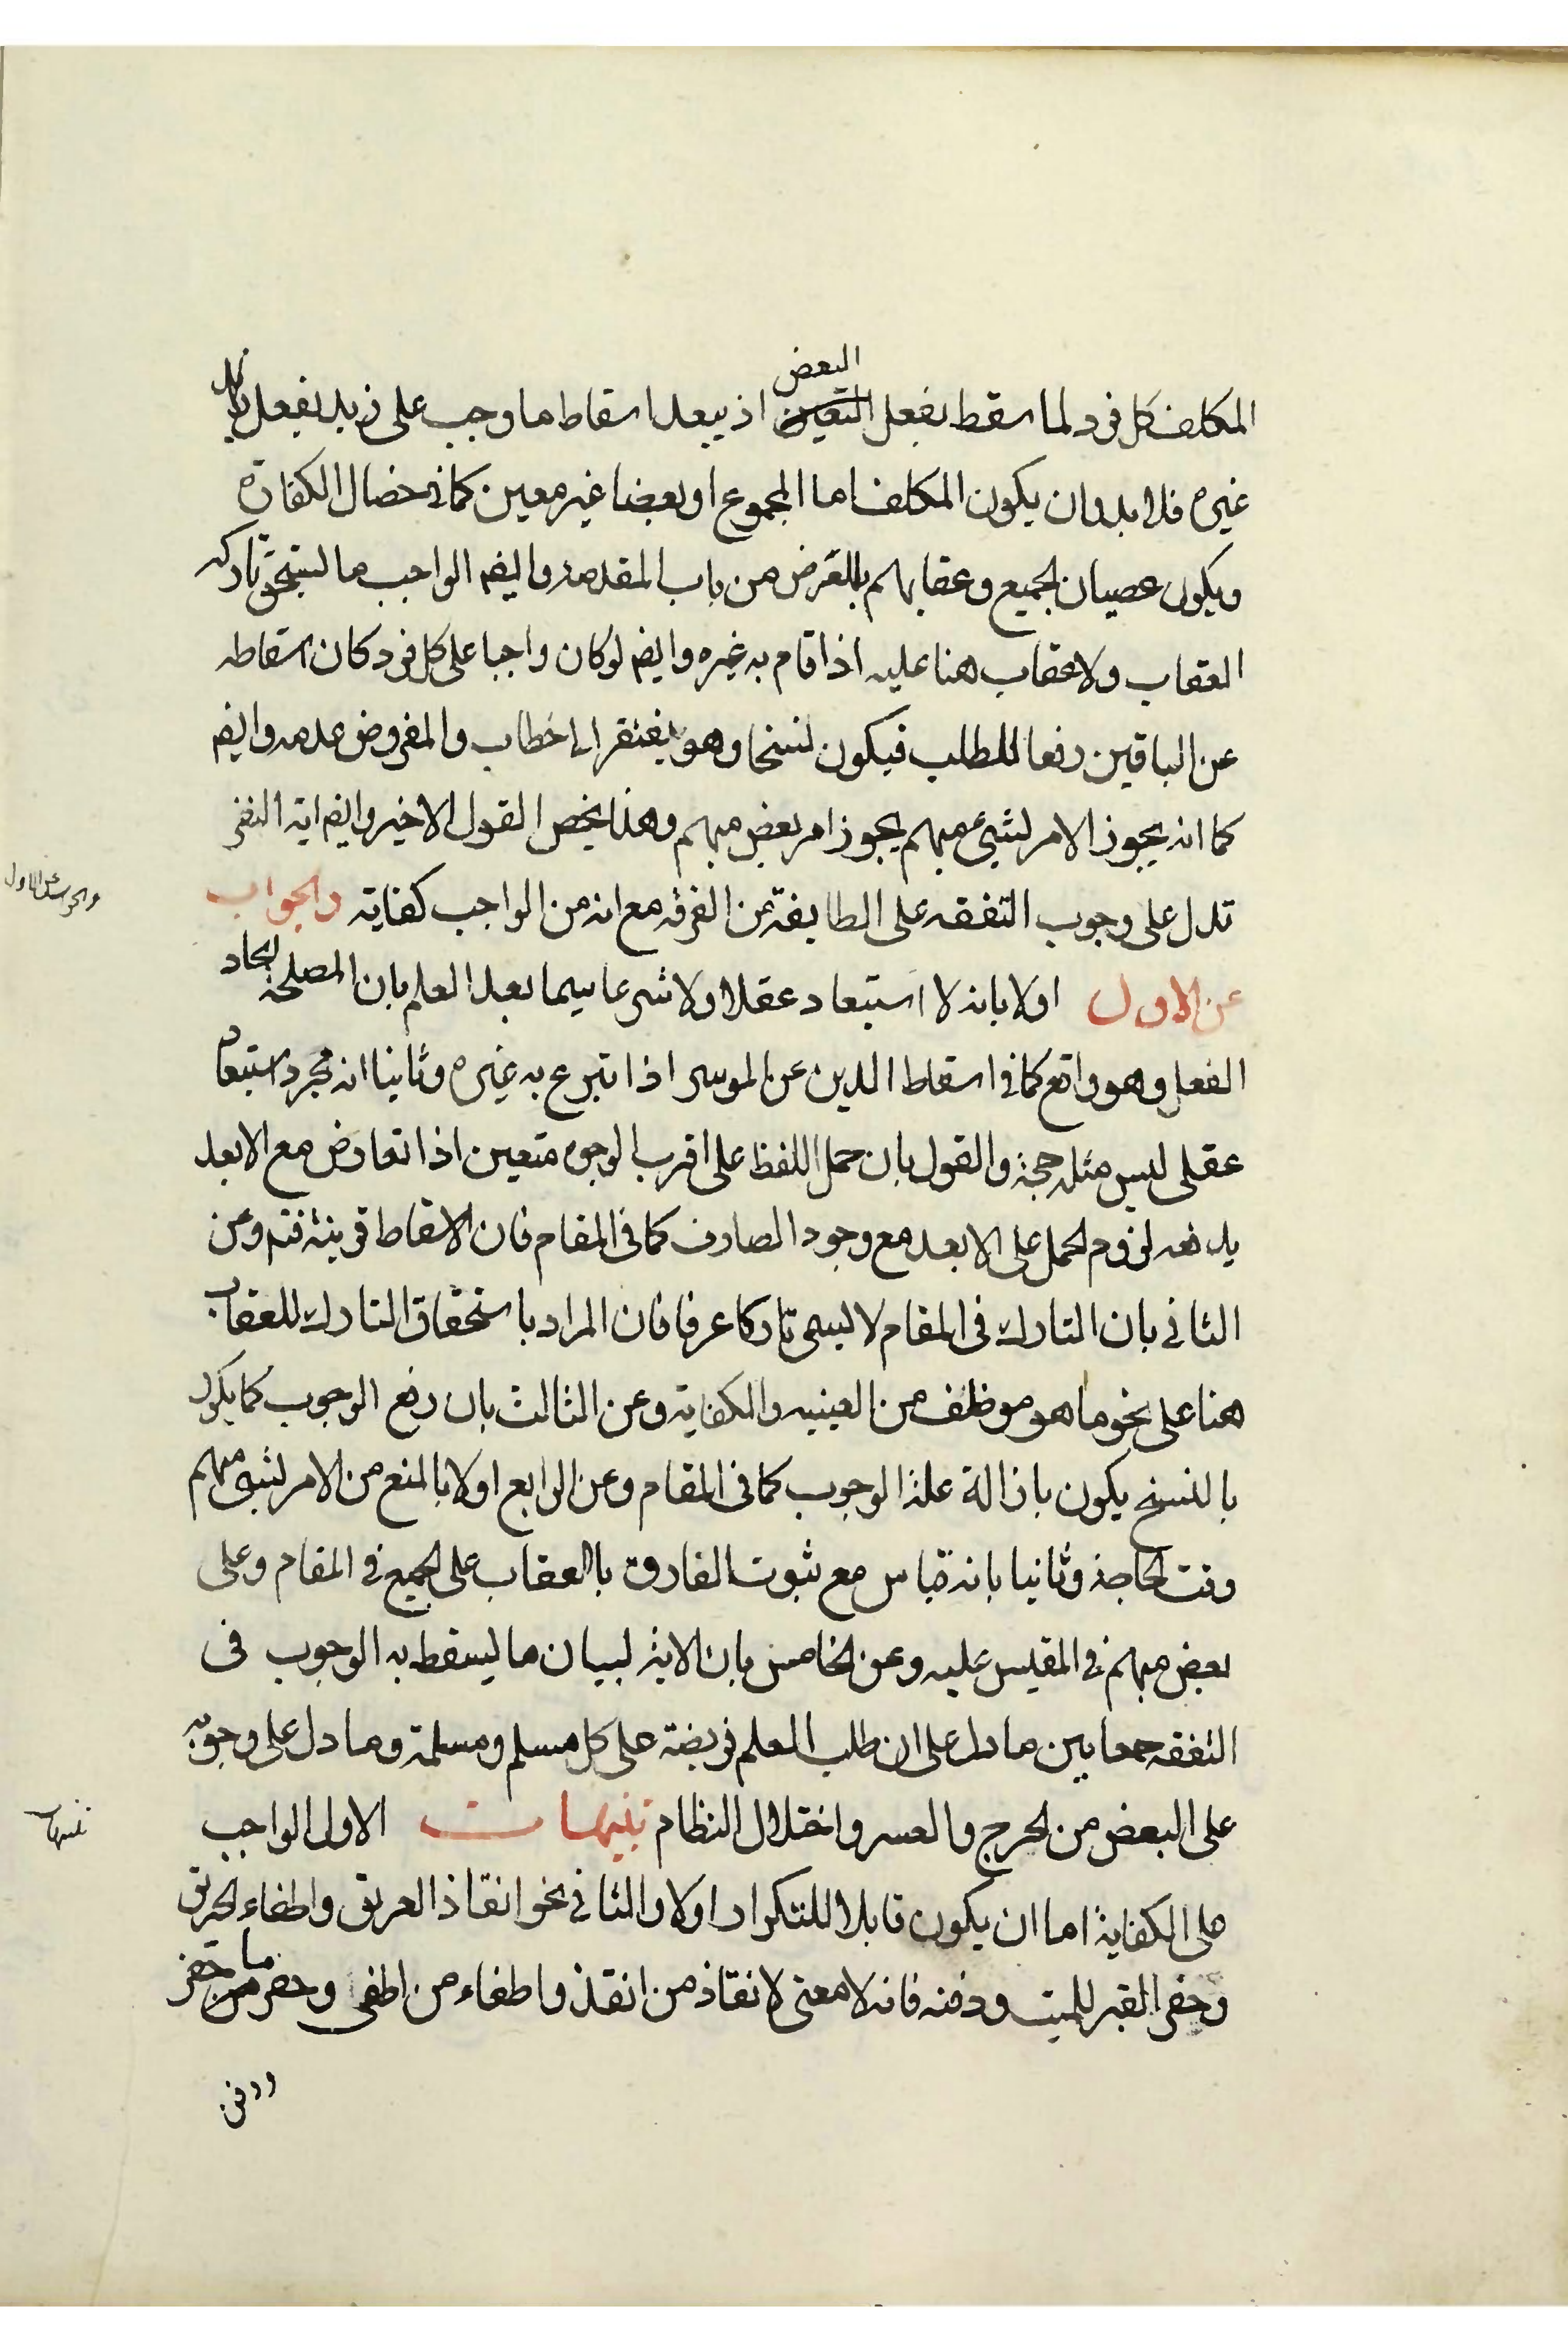 المكلف كل فرد لما سقط بفعل البعض اذ يبعد اسقاط ما وجب على زيد بفعل
غيره فلا بد وان يكون المكلف اما المجموع او بعضا غير معين كما في خصال الكفارة
ويكون عصيان الجميع وعقابهم بالعرض من باب المقدمة وايضم الواجب ما يستحق تاركه
العقاب ولا عقاب هنا عليه اذا قام به غيره وايضم لو كان واجبا على كل فرد كان اسقاطه
عن الباقين رفعا للطلب فيكون نسخا وهو يفتقر الى خطاب والمفروض عدمه وايضم
كما انه يجوز الامر بشيئ مبهم يجوز امر بعض مبهم وهذا يخص القول الاخير وايضم اية النفر
تدل على وجوب التفقه على الطايفة من الفرقة مع انه من الواجب كفاية والجواب
والجواب عن الاول
عن الاول اولا بانه لا استبعاد عقلا ولا شرعا سيما بعد العلم بان المصلحة ايجاد
الفعل وهو واقع كما في اسقاط الدين عن الموسر اذا تبرع به غيره وثانيا انه مجرد استبعاد
عقلي ليس مثله حجة والقول بان حمل اللفظ على اقرب الوجوه متعين اذا تعارض مع الابعد
يدفعه لزوم الحمل على الابعد مع وجود الصارف كما في المقام فان الاسقاط قرينة فتم وعن
الثاني بان التارك في المقام لا يسمى تاركا عرفا فان المراد باستحقاق التارك للعقاب
هنا على نحو ما هو موظف من العينيه والكفاية وعن الثالث بان رفع الوجوب كما يكون
بالنسخ يكون بازالة علة الوجوب كما في المقام وعن الرابع اولا بالمنع من الامر بشيئ مبهم
وقت الحاجة وثانيا بانه قياس مع ثبوت الفارق بالعقاب على الجميع في المقام وعلى
بعض مبهم في المقيس عليه وعن الخامس بان الاية لبيان ما يسقط به الوجوب في
التفقه جمعا بين ما دل على ان طلب العلم فريضة على كل مسلم ومسلمة وما دل على وجوبه
على البعض من الحرج والعسر واختلال النظام تنبيهات الاول الواجب
تنبيهات
على الكفاية اما ان يكون قابلا للتكرار اولا والثاني نحو انقاذ الغريق واطفاء الحريق
وحفر القبر للميت ودفنه فانه لا معنى لانقاذ من انقذ واطفاء من اطفى وحفر ما حفر
ودفن